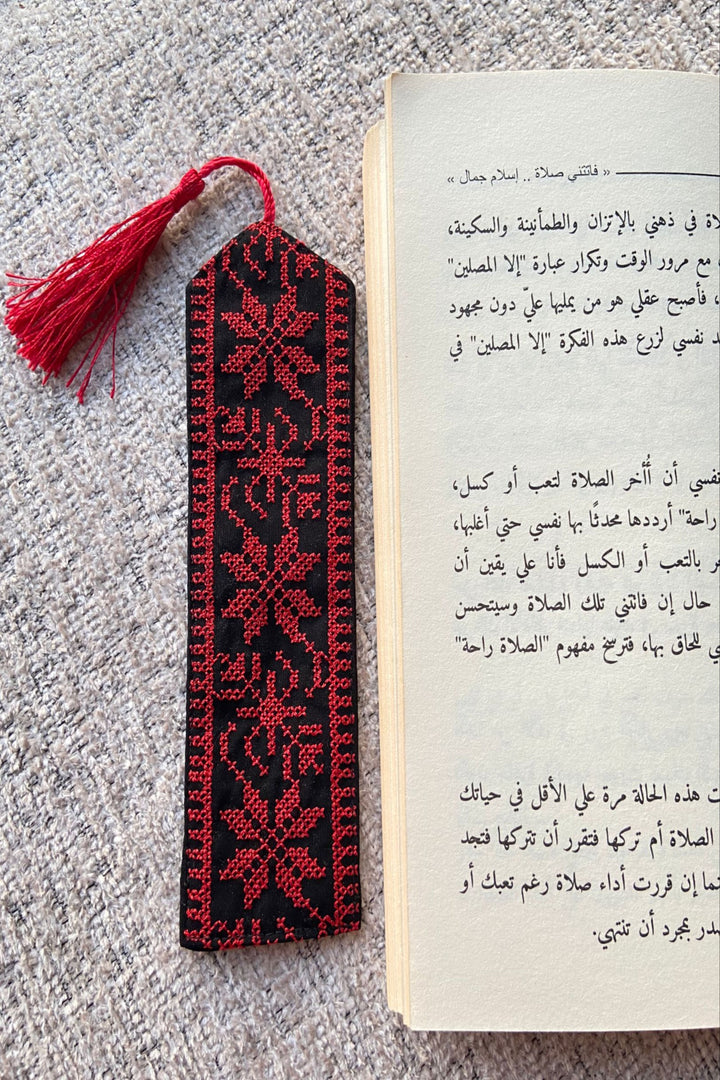 « فاتتني صلاة .. إسلام جمال »
في ذهني بالإتزان والطمأنينة والسكينة،
مع مرور الوقت وتكرار عبارة "إلا المصلين"
، فأصبح عقلي هو من يمليها عليّ دون مجهود
نفسي لزرع هذه الفكرة "إلا المصلين" في
نفسي أن أُأخر الصلاة لتعب أو كسل،
راحة" أرددها محدثًا بها نفسي حتي أغلبها،
بالتعب أو الكسل فأنا علي يقين أن
حال إن فاتتني تلك الصلاة وسيتحسن
للحاق بها، فترسخ مفهوم "الصلاة راحة"
هذه الحالة مرة علي الأقل في حياتك
الصلاة أم تركها فتقرر أن تتركها فتجد
إن قررت أداء صلاة رغم تعبك أو
بمجرد أن تنتهي.